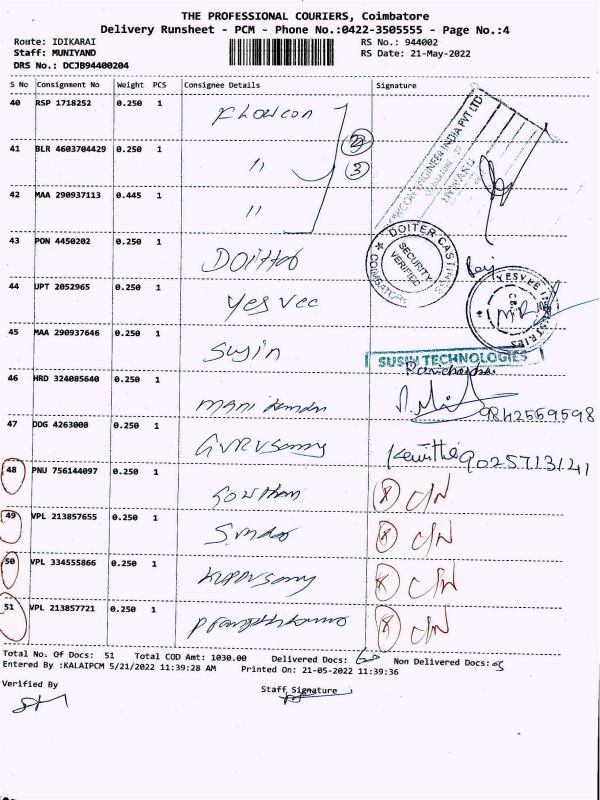 THE PROFESSIONAL COURIERS, Coimbatore
Delivery Runsheet - PCM - Phone No.:0422-3505555 - Page No.:4
Route: IDIKARAI RS No.: 944002
Staff: MUNIYAND RS Date: 21-May-2022
DRS No.: DCJB94400204
S No Consignment No Weight PCS Consignee Details Signature
40 RSP 1718252 0.250 1 Flowcon
41 BLR 4603704429 0.250 1 " 3
42 MAA 290937113 0.445 1 "
43 PON 4450202 0.250 1 DOITER CASTINGS SECURITY VERIFIED COIMBATORE
44 UPT 2052965 0.250 1 Yesvee YESVEE INDUSTRIES
45 MAA 290937646 0.250 1 Sujin SUSIN TECHNOLOGIES
46 HRD 324085640 0.250 1 Mani 9842569598
47 DDG 4263000 0.250 1 9025713141
48 PNU 756144097 0.250 1 Gowtham C/N
49 VPL 213857655 0.250 1 C/N
50 VPL 334555866 0.250 1 C/N
51 VPL 213857721 0.250 1 C/N
Total No. Of Docs: 51 Total COD Amt: 1030.00 Delivered Docs: Non Delivered Docs:
Entered By :KALAIPCM 5/21/2022 11:39:28 AM Printed On: 21-05-2022 11:39:36
Verified By Staff Signature